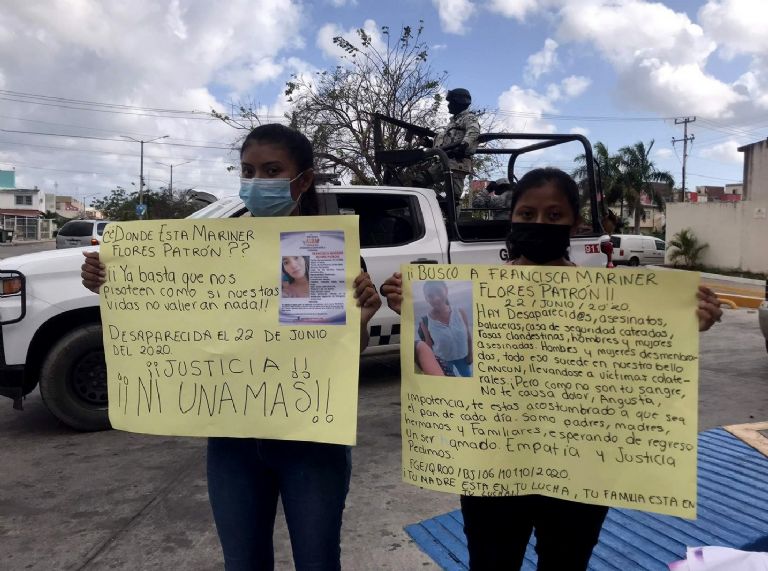 ¿¿DONDE ESTA MARINER
FLORES PATRÓN??
¡¡Ya basta que nos
pisoteen como si nuestras
vidas no valieran nada!!
DESAPARECIDA EL 22 DE JUNIO
DEL 2020.
¡¡JUSTICIA!!
¡¡NI UNA MAS!!
¡¡BUSCO A FRANCISCA MARINER
FLORES PATRÓN!!
22/JUNIO/2020.
HAY Desaparecid@s, asesinatos,
balaceras, casa de seguridad cateadas,
fosas clandestinas, hombres y mujeres
asesinadas. Hombres y mujeres desmembra-
dos, todo eso sucede en nuestro bello
CANCUN, llevandose a víctimas colate-
rales ¡Pero como no son tu sangre,
No te causa dolor, Angustia,
impotencia, te estas acostumbrado a que sea
el pan de cada día. Somo padres, madres,
hermanos y Familiares, esperando de regreso
Un ser amado. Empatía y Justicia
Pedimos.
FGE/QROO/BJ/06/10110/2020.
¡TU MADRE ESTA EN TU LUCHA, TU FAMILIA ESTA EN
TU LUCHA!
911